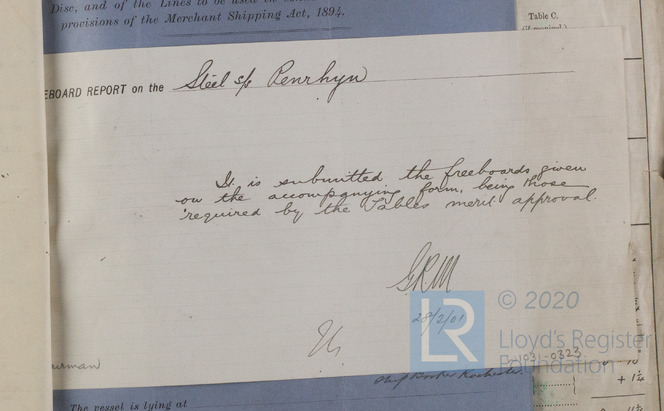 Disc, and of the Lines to be used in
provisions of the Merchant Shipping Act, 1894.
Table C.
EBOARD REPORT on the Steel s/s Penrhyn
It is submitted the freeboards given
on the accompanying form, being those
required by the Tables merit approval.
GRM
28/2/01
LR
© 2020
Lloyd's Register
Foundation
03-0323
urman
+ 1¼
The vessel is lying at